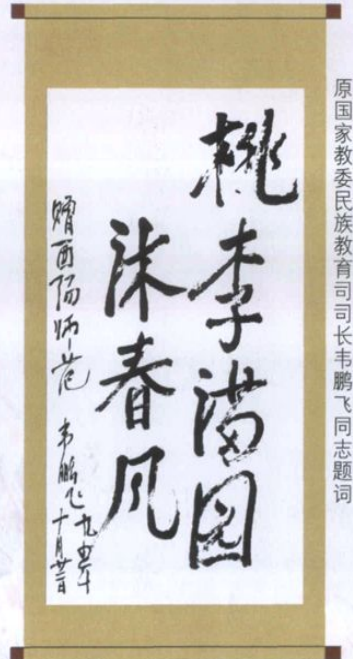 原国家教委民族教育司司长韦鹏飞同志题词
桃李满园
沐春风
赠酉阳师范
韦鹏飞 九五年
十月廿三日